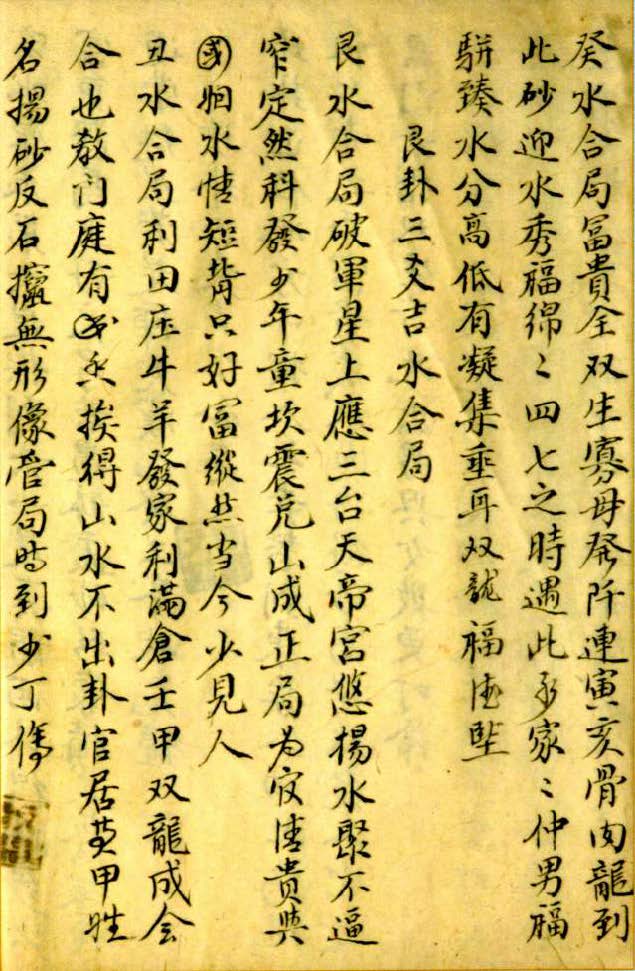 癸水合局冨貴全双生寡母發阡連寅亥骨肉龍到
此砂迎水秀福綿〻四七之時遇此家〻仲男福
駢臻水分高低有凝集垂耳双龍福
艮卦三爻吉水合局
艮水合局破軍星上應三台天帝宮悠揚水聚不逼
窄定然科發少年童坎震兌山成正局為官清貴與
國囬水情短背只好冨縱然当今少見人
丑水合局利田庄牛羊發家利滿倉壬甲双龍成会
合也教门庭有挨得山水不出卦官居甲姓
名揚砂反石攛無形像管局時到少丁傷